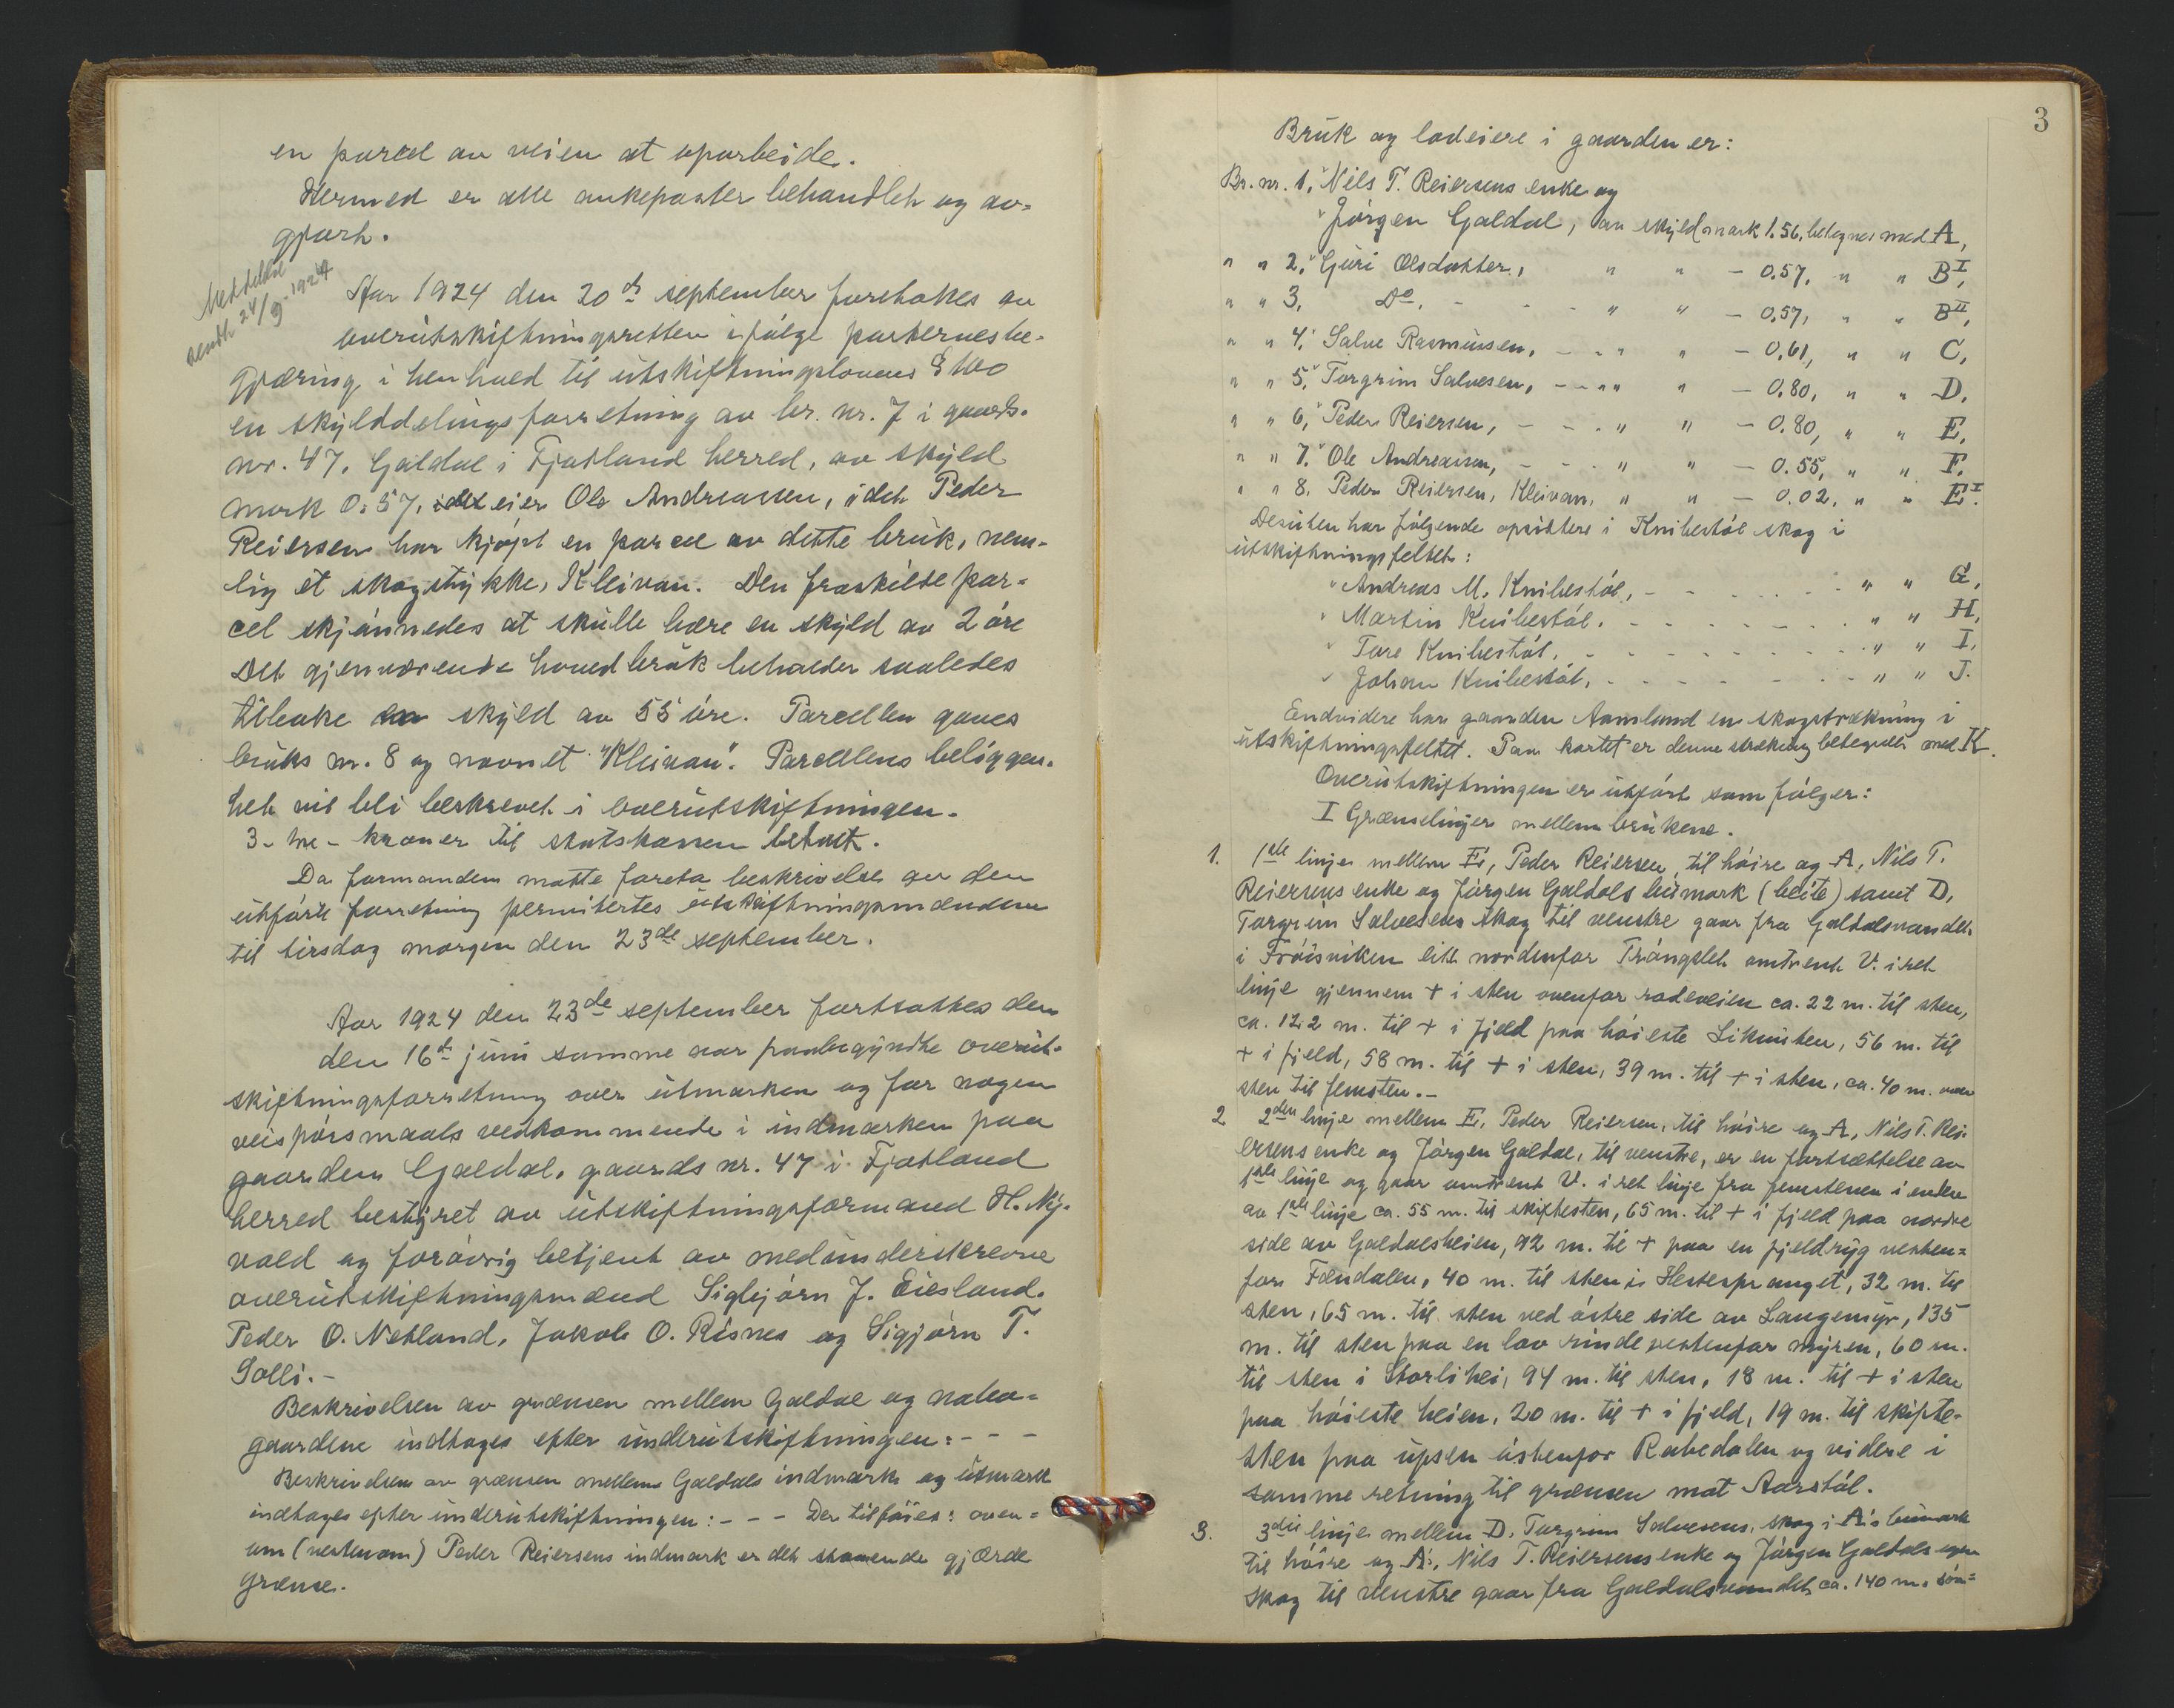 en parcel av veien at oparbeide.
Hermed er alle ankeposter behandlet og av-
gjort.
Meddelelse
sendt 24/9-1924
Aar 1924 den 20de september foretokes av
overutskiftningsretten ifølge parternes be-
gjæring i henhold til utskiftningslovens §
en skylddelingsforretning av br. nr. 7 i gaards-
nr. 47, Galdal i Fjotland herred, av skyld
mark 0.57, eier Ole Andreassen, idet Peder
Reiersen har kjøpt en parcel av dette bruk, nem-
lig et skogstykke, Kleivan. Den fraskilte par-
cel skjønnedes at skulle bære en skyld av 2 øre
Det gjenværende hovedbruk beholder saaledes
tilbake skyld av 55 øre. Parcellen gaves
bruks nr. 8 og navnet "Kleivan". Parcellens beliggen-
het vil bli beskrevet i overutskiftningen.
3 - tre - kroner til statskassen betalt.
Da formanden maatte foreta beskrivelse av den
utførte forretning permitertes utskiftningsmændene
til tirsdag morgen den 23de september.
Aar 1924 den 23de september fortsattes den
den 16de juni samme aar paabegyndte overut-
skiftningsforretning over utmarken og for nogen
veispørsmaals vedkommende i indmarken paa
gaarden Galdal, gaards nr. 47 i Fjotland
herred bestyret av utskiftningsformand H. Ny-
vold og forøvrig betjent av medunderskrevne
overutskiftningsmænd Sigbjørn J. Eiesland,
Peder O. Netland, Jakob O. Risnes og Sigjørn T.
Solli.-
Beskrivelsen av grænsen mellem Galdal og nabo-
gaardene indtages efter underutskiftningen: - - -
Beskrivelsen av grænsen mellem Galdals indmark og utmark
indtages efter underutskiftningen: - - - Der tilføies: oven-
om (vestenom) Peder Reiersens indmark er det staaende gjærde
grænse.
3
Bruk og lodeiere i gaarden er:
Br. nr. 1, Nils T. Reiersens enke og
Jørgen Galdal, av skyld mark 1.56, betegnes med A,
" " 2, Guri Olsdatter, " " - 0.57, " " BI,
" " 3, Do. - - - " " - 0.57, " " BII,
" " 4, Salve Rasmussen, - - " " - 0.61, " " C,
" " 5, Torgrim Salvesen, - - " " - 0.80, " " D,
" " 6, Peder Reiersen, - - - " " - 0.80, " " E,
" " 7, Ole Andreassen, - - - " " - 0.55, " " F,
" " 8, Peder Reiersen, Kleivan, " " - 0.02, " " EI.
Desuten har følgende opsittere i Knibestøl skog i
utskiftningsfeltet:
Andreas M. Knibestøl, - - - - - - " " G,
Martin Knibestøl, - - - - - - - " " H,
Tore Knibestøl, - - - - - - - - " " I,
Johan Knibestøl, - - - - - - - " " J.
Endvidere har gaarden Aamland en skogstrækning i
utskiftningsfeltet. Paa kartet er denne strækning betegnet med K.
Overutskiftningen er utført som følger:
I Grænselinjer mellem brukene.
1. 1ste linje mellem E, Peder Reiersen, til høire og A, Nils T.
Reiersens enke og Jørgen Galdals bumark (beite) samt D,
Torgrim Salvesens skog til venstre gaar fra Galdalsvandet
i Frøisviken litt nordenfor Trongslet omtrent V. i ret
linje gjennem + i sten ovenfor rodeveien ca. 22 m. til sten,
ca. 122 m. til + i fjeld paa høieste Liknuten, 56 m. til
+ i fjeld, 58 m. til + i sten, 39 m. til + i sten, ca. 40 m. over
sten til femsten.-
2 2den linje mellem E, Peder Reiersen, til høire og A, Nils T. Rei-
ersens enke og Jørgen Galdal, til venstre, er en fortsættelse av
1ste linje og gaar omtrent V. i ret linje fra femstenen i enden
av 1ste linje ca. 55 m. til skiftesten, 65 m. til + i fjeld paa nordre
side av Galdalsheien, 92 m. til + paa en fjeldryg vesten-
for Fændalen, 40 m. til sten i Hestespranget, 32 m. til
sten, 65 m. til sten ved østre side av Langemyr, 135
m. til sten paa en lav rinde vestenfor myren, 60 m.
til sten i Storlihei, 94 m. til sten, 18 m. til + i sten
paa høieste heien, 20 m. til + i fjeld, 19 m. til skifte-
sten paa upsen østenfor Rabedalen og videre i
samme retning til grænsen mot Aarstøl.
3. 3die linje mellem D, Torgrim Salvesens, skog i A's bumark
til høire og A, Nils T. Reiersens enke og Jørgen Galdals egen
skog til venstre gaar fra Galdalsvandet ca. 140 m. søn-